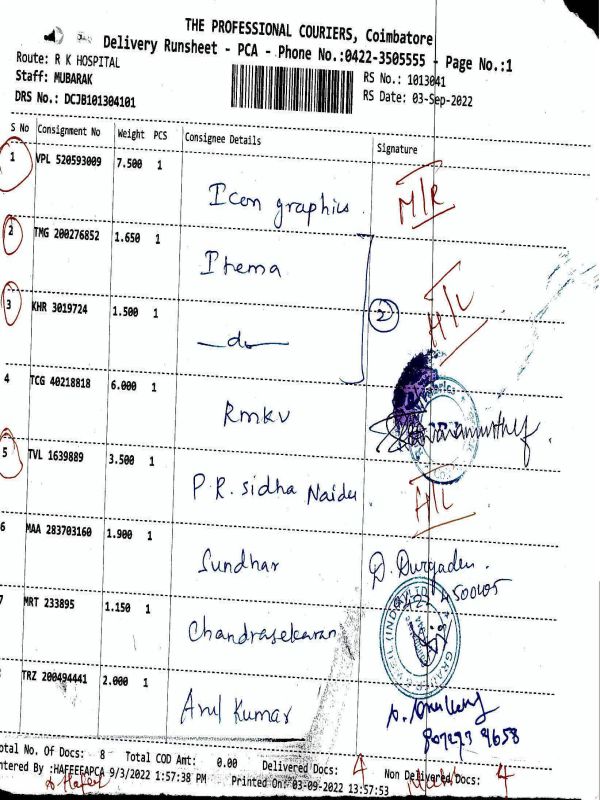 THE PROFESSIONAL COURIERS, Coimbatore
Delivery Runsheet - PCA - Phone No.:0422-3505555 - Page No.:1
Route: R K HOSPITAL
Staff: MUBARAK
RS No.: 1013041
DRS No.: DCJB101304101
RS Date: 03-Sep-2022
S No Consignment No Weight PCS Consignee Details Signature
1 VPL 520593009 7.500 1
Icon graphics M/R
2 TMG 200276852 1.650 1
Itema
3 KHR 3019724 1.500 1 2 H/L
-do-
4 TCG 40218818 6.000 1
RMKV
5 TVL 1639889 3.500 1
P.R. sidha Naidu. H/L
6 MAA 283703160 1.900 1
Sundhar D. Durgadevi.
0422 4500105
7 MRT 233895 1.150 1
Chandrasekaran
TRZ 200494441 2.000 1
Arul Kumar
9658
otal No. Of Docs: 8 Total COD Amt: 0.00 Delivered Docs: 4 Non Delivered Docs: 4
ntered By :HAFEEEAPCA 9/3/2022 1:57:38 PM Printed On: 03-09-2022 13:57:53